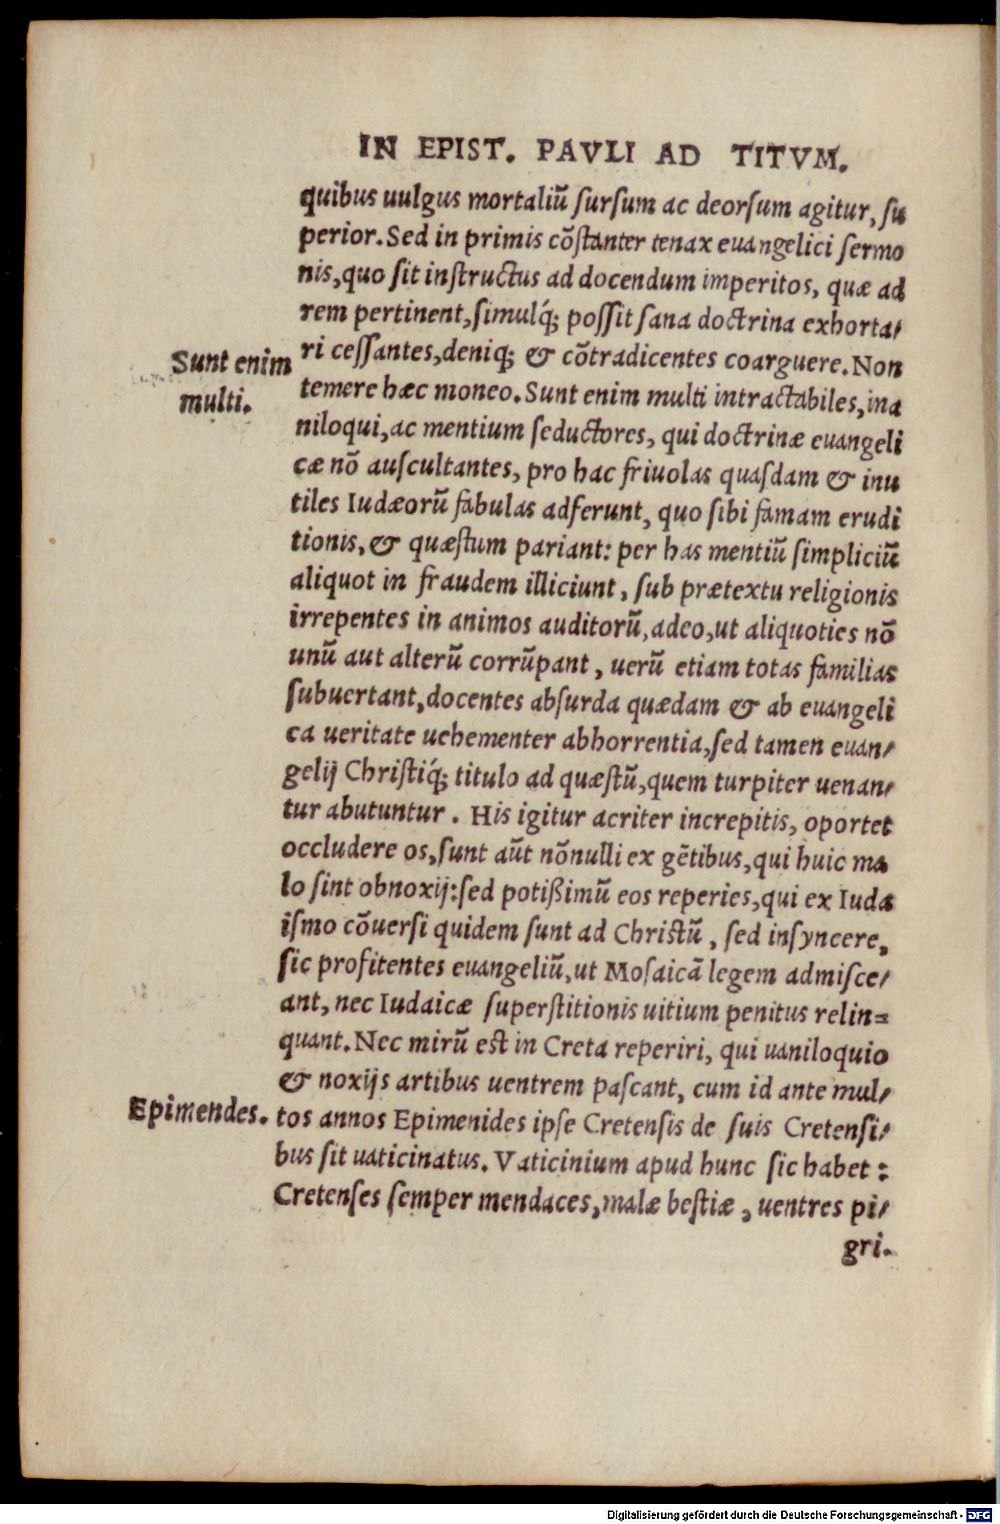 IN EPIST. PAVLI AD TITVM.
quibus uulgus mortaliũ ſurſum ac deorſum agitur, ſu
perior. Sed in primis cõſtanter tenax euangelici ſermo
nis, quo ſit inſtructus ad docendum imperitos, quæ ad
rem pertinent, ſimulq́; poſſit ſana doctrina exhorta/
ri ceſſantes, deniq; & cõtradicentes coarguere. Non
Sunt enim
multi.
temere hæc moneo. Sunt enim multi intractabiles, ina
niloqui, ac mentium ſeductores, qui doctrinæ euangeli
cæ nõ auſcultantes, pro hac friuolas quaſdam & inu
tiles Iudæorũ fabulas adferunt, quo ſibi famam erudi
tionis, & quæſtum pariant: per has mentiũ ſimpliciũ
aliquot in fraudem illiciunt, ſub prætextu religionis
irrepentes in animos auditorũ, adeo, ut aliquoties nõ
unũ aut alterũ corrũpant, uerũ etiam totas familias
ſubuertant, docentes abſurda quædam & ab euangeli
ca ueritate uehementer abhorrentia, ſed tamen euan/
gelij Chriſtiq́; titulo ad quæſtũ, quem turpiter uenan/
tur abutuntur. His igitur acriter increpitis, oportet
occludere os, ſunt aũt nõnulli ex gẽtibus, qui huic ma
lo ſint obnoxij: ſed potißimũ eos reperies, qui ex Iuda
iſmo cõuerſi quidem ſunt ad Chriſtũ, ſed inſyncere,
ſic profitentes euangeliũ, ut Moſaicã legem admiſce/
ant, nec Iudaicæ ſuperſtitionis uitium penitus relin=
quant. Nec mirũ eſt in Creta reperiri, qui uaniloquio
& noxijs artibus uentrem paſcant, cum id ante mul/
Epimendes.
tos annos Epimenides ipſe Cretenſis de ſuis Cretenſi/
bus ſit uaticinatus. Vaticinium apud hunc ſic habet:
Cretenſes ſemper mendaces, malæ beſtiæ, uentres pi/
gri.
Digitalisierung gefördert durch die Deutsche Forschungsgemeinschaft - DFG